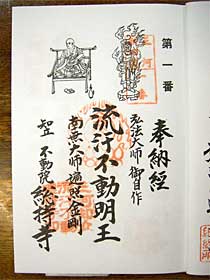 第一番
奉納経
弘法大師御自作
流行不動明王
南無大師遍照金剛
知立不動院総持寺